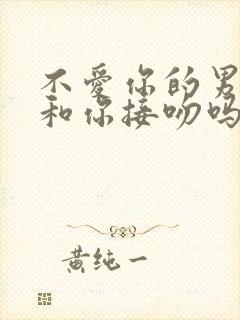 不爱你的男
和你接吻吗
黄纯一